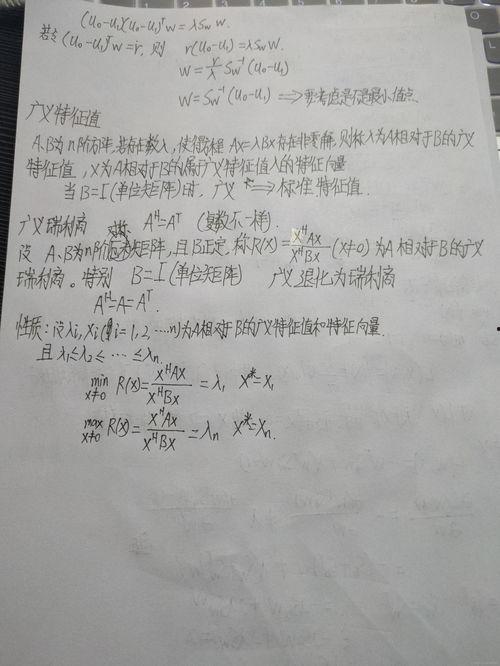 (u₀-u₁)(u₀-u₁)ᵀw = λSw w.
若令 (u₀-u₁)ᵀw = r, 则 r(u₀-u₁) = λSw w.
w = r/λ Sw⁻¹(u₀-u₁)
w = Sw⁻¹(u₀-u₁) ⟹ 要考虑是否是最小值点.
广义特征值
A、B为n阶方阵,若存在数λ,使得方程 Ax=λBx存在非零解,则称λ为A相对于B的广义
特征值,x为A相对于B的属于广义特征值λ的特征向量
当B=I(单位矩阵)时,广义 ⟹ 标准特征值.
广义瑞利商 Aᴴ=Aᵀ (复数不一样).
设 A、B为n阶矩阵,且B正定,称R(x)= xᴴAx / xᴴBx (x≠0) 为A相对于B的广义
瑞利商。特别 B=I(单位矩阵) 广义退化为瑞利商
Aᴴ=A=Aᵀ.
性质:设λi, xi (i=1,2,…n)为A相对于B的广义特征值和特征向量
且 λ₁≤λ₂≤…≤λn.
min x≠0 R(x)= xᴴAx / xᴴBx = λ₁ x*=x₁
max x≠0 R(x)= xᴴAx / xᴴBx = λn x*=xn.